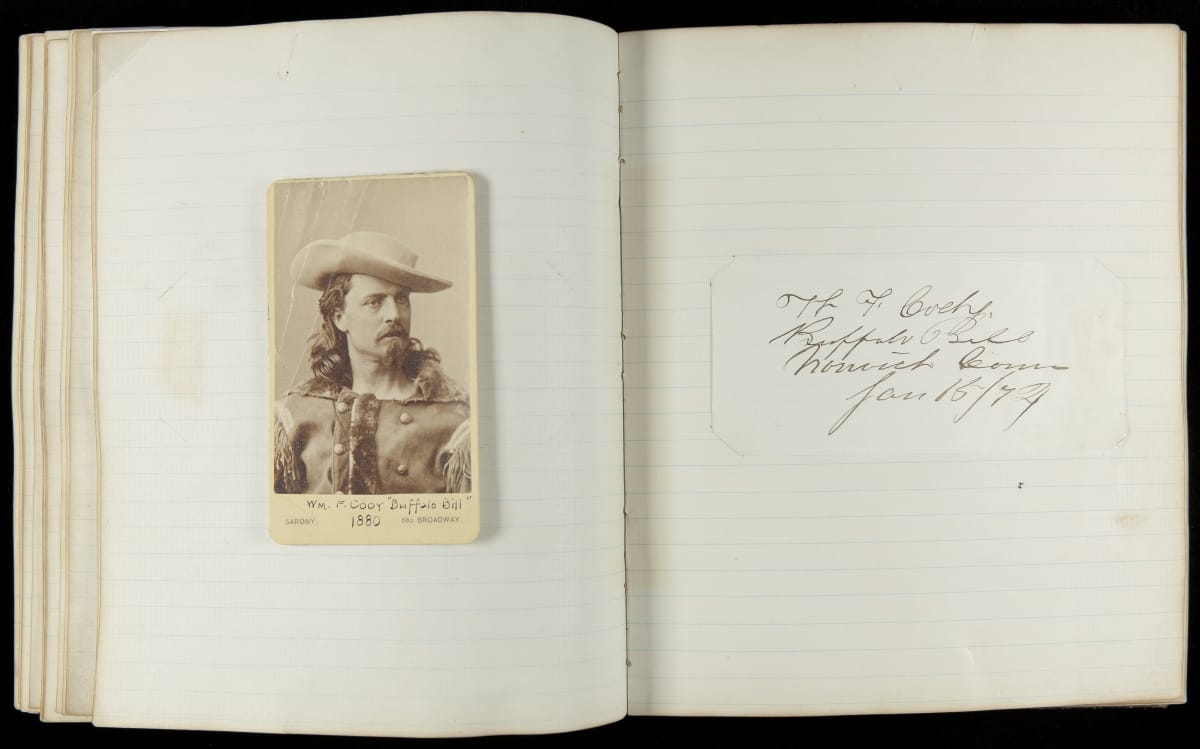 Wm. F. Cody "Buffalo Bill"
SARONY. 1880 680 BROADWAY.
F. Cody.
Buffalo Bill
Norwich Conn
Jan 15/74